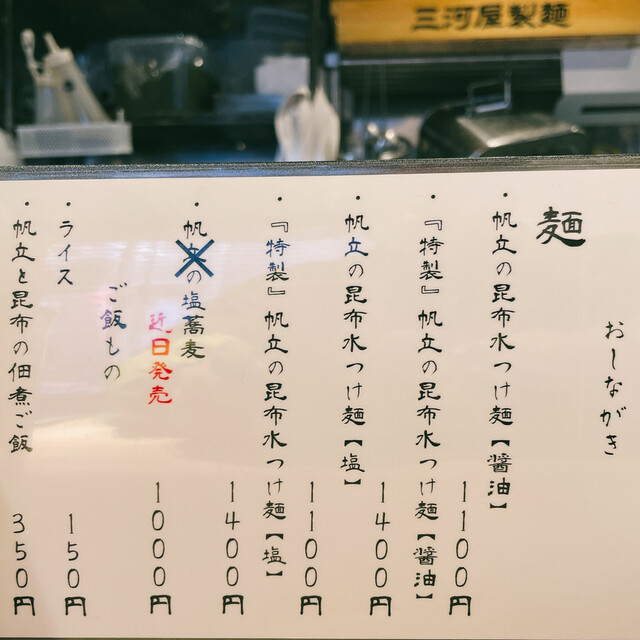 三河屋製麺
おしながき
麺
・帆立の昆布水つけ麺【醤油】
1100円
・『特製』帆立の昆布水つけ麺【醤油】
1400円
・帆立の昆布水つけ麺【塩】
1100円
・『特製』帆立の昆布水つけ麺【塩】
1400円
・帆立の塩蕎麦
近日発売
1000円
ご飯もの
・ライス
150円
・帆立と昆布の佃煮ご飯
350円